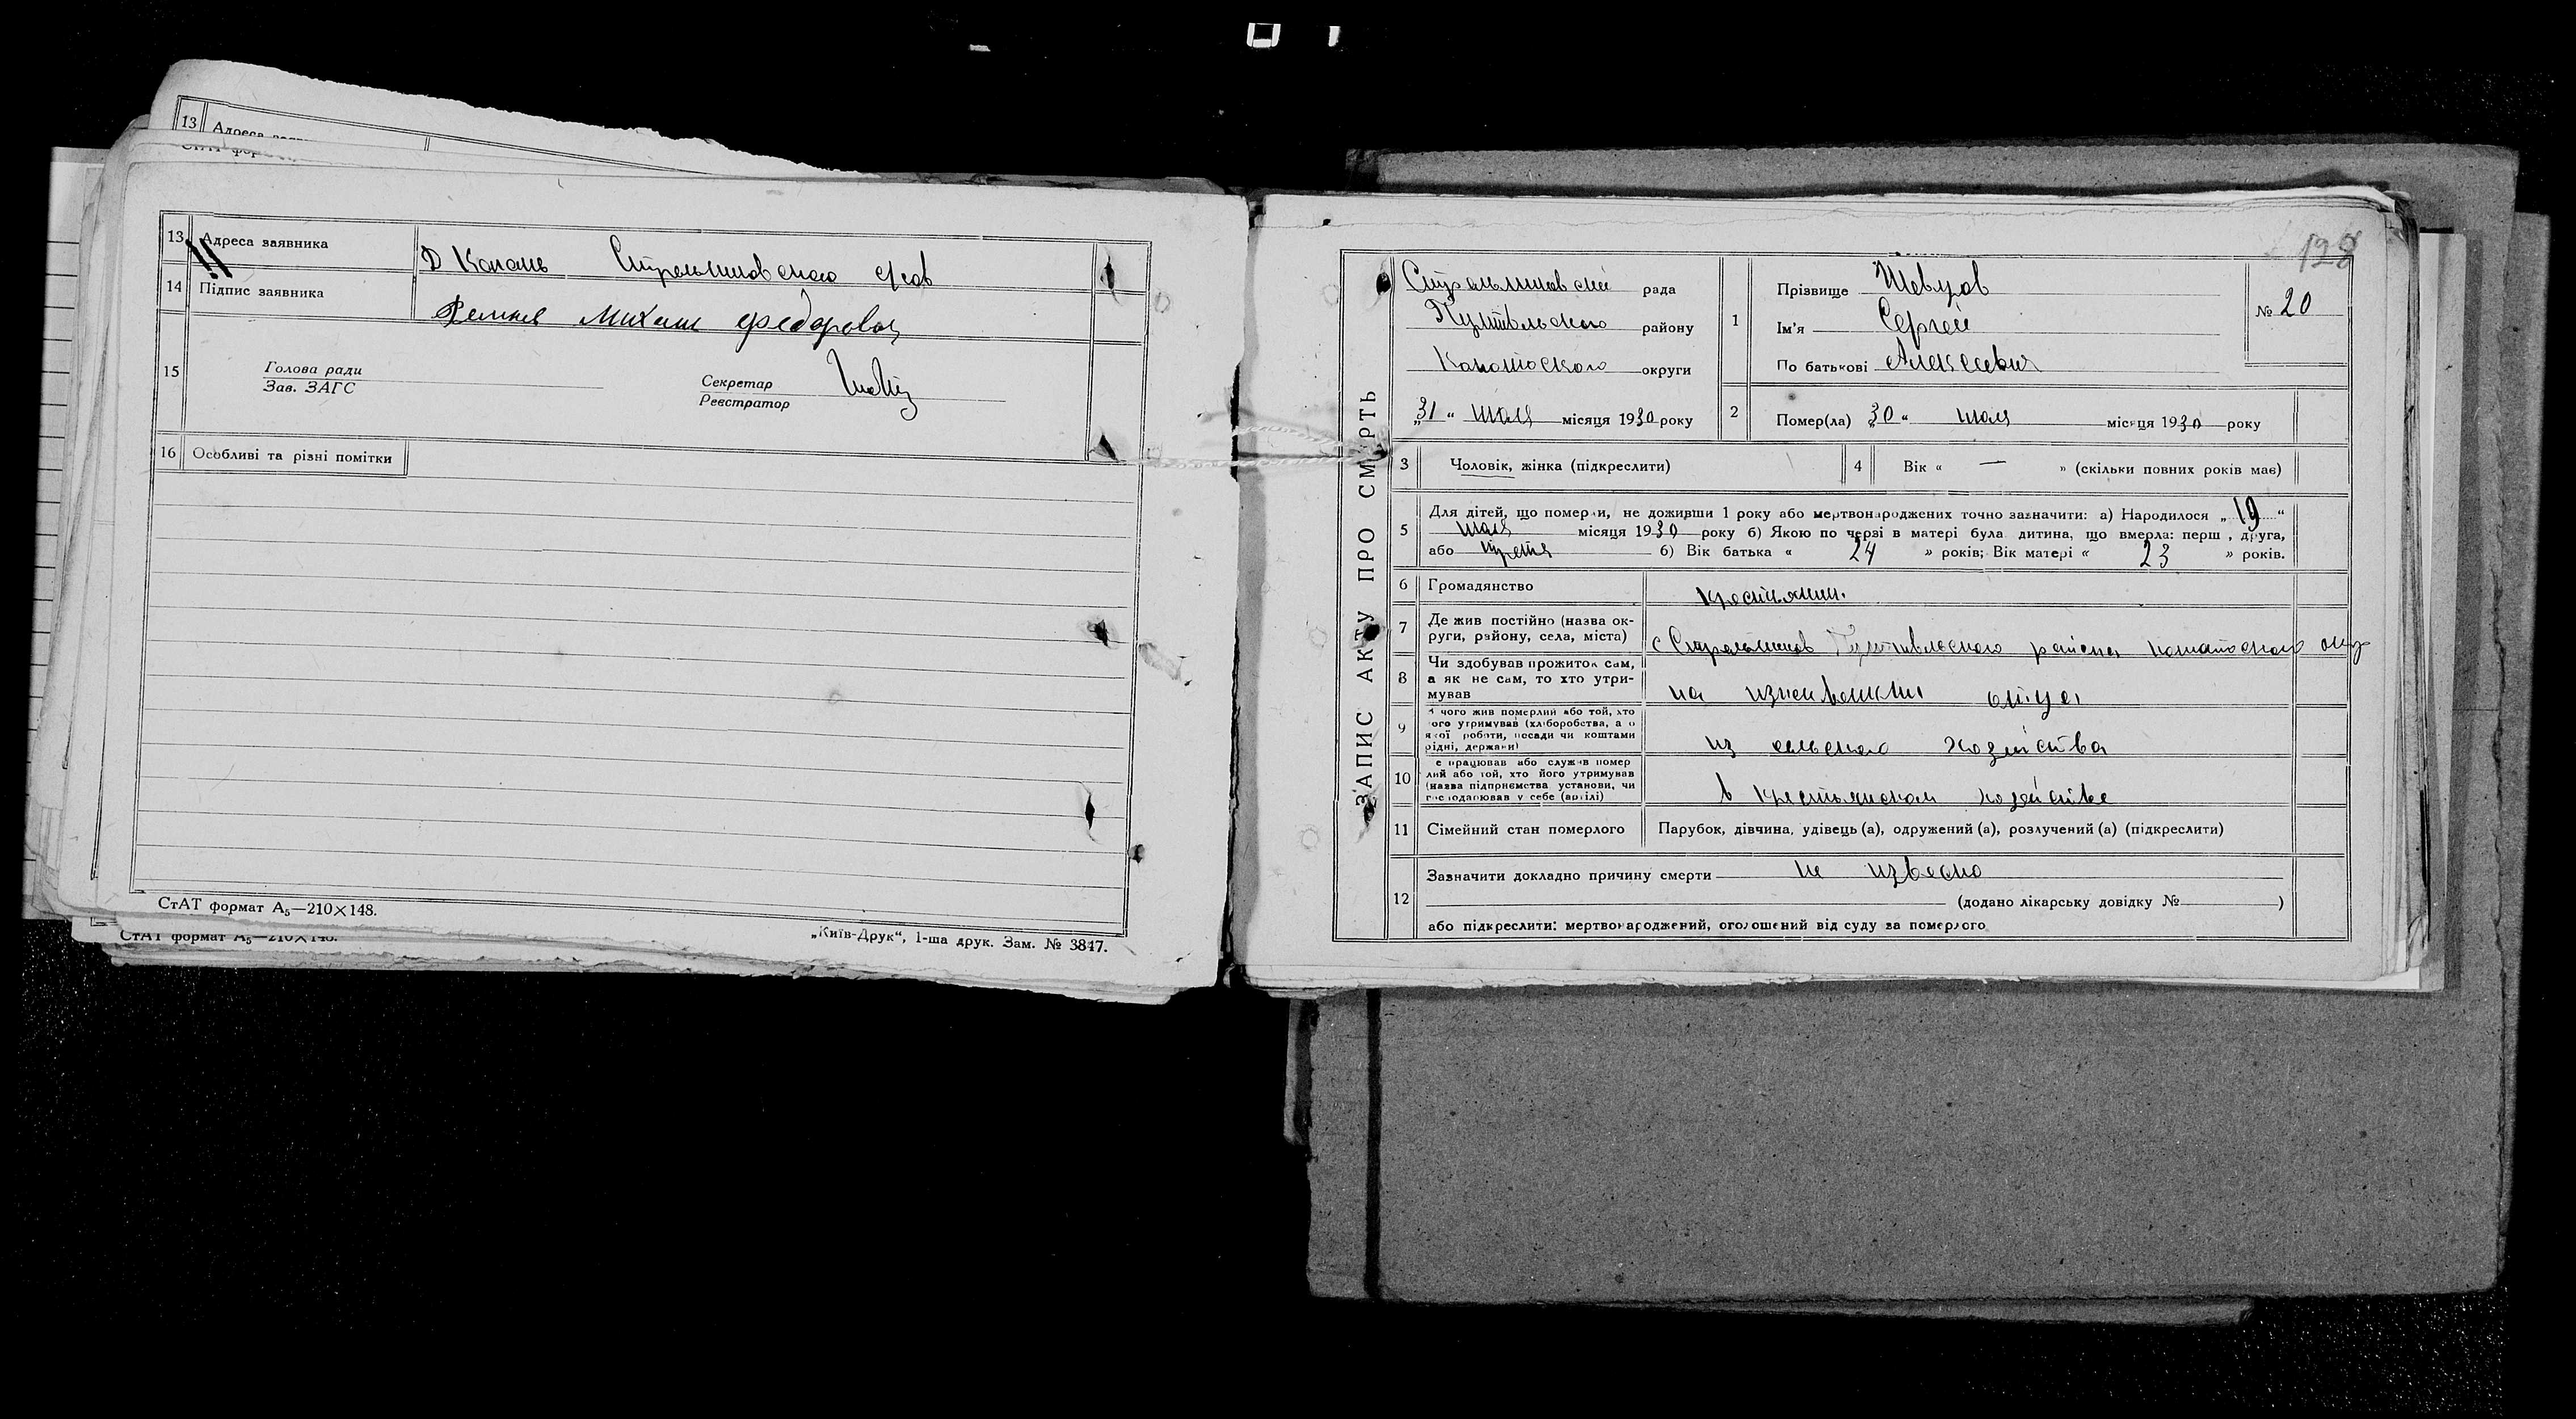 13 Адреса
13 Адреса заявника Д Копань
14 Підпис заявника Михаил Федорович
15 Голова ради
Зав. ЗАГС
Секретар
Реєстратор
16 Особливі та різні помітки
СтАТ формат А₅—210×148.
„Київ-Друк“, 1-ша друк. Зам. № 3847.
СтАТ формат А₅—210×148.
128
ЗАПИС АКТУ ПРО СМЕРТЬ
рада
Путивльского району
округи
„31“ июля місяця 1930 року
1 Прізвище Шевцов
Ім'я Сергей
По батькові Алексеевич
№ 20
2 Помер(ла) 30 “ июля місяця 1930 року
3 Чоловік, жінка (підкреслити)
4 Вік « — » (скільки повних років має)
5 Для дітей, що померли, не доживши 1 року або мертвонароджених точно зазначити: а) Народилося „19“
июля місяця 1930 року б) Якою по черзі в матері була дитина, що вмерла: перша, друга,
або третя б) Вік батька « 24 » років; Вік матері « 23 » років.
6 Громадянство крестьянин.
7 Де жив постійно (назва ок-
руги, району, села, міста) с Путивльского района окр
8 Чи здобував прожиток сам,
а як не сам, то хто утри-
мував на отца
9 З чого жив померлий або той, хто
його утримував (хліборобства, а о
якої роботи, посади чи коштами
рідні, держави) из сельского хозяйства
10 Де працював або служив помер
лий або той, хто його утримував
(назва підприємства установи, чи
господарював у себе (артілі) в крестьянском хозяйстве
11 Сімейний стан померлого Парубок, дівчина, удівець (а), одружений (а), розлучений (а) (підкреслити)
12 Зазначити докладно причину смерти не извесно
(додано лікарську довідку № )
або підкреслити: мертвонароджений, оголошений від суду за померлого